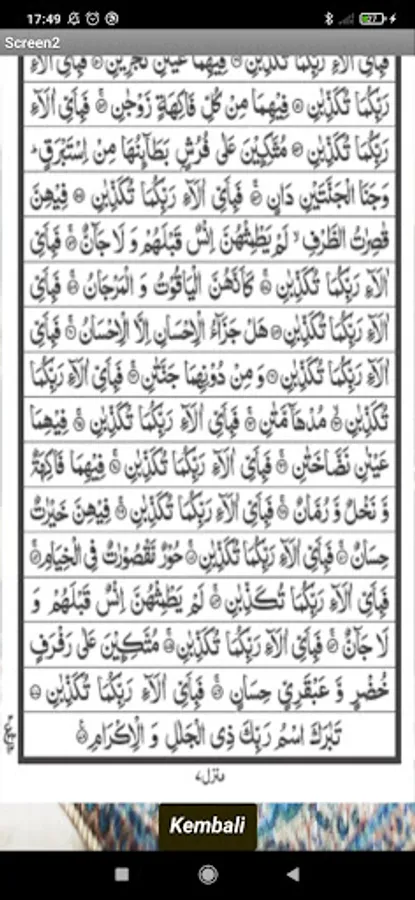 17:49
27
Screen2
فَبِاَيِّ اٰلَآءِ رَبِّكُمَا تُكَذِّبٰنِ فِيْهِمَا عَيْنٰنِ تَجْرِيٰنِ فَبِاَيِّ اٰلَآءِ
رَبِّكُمَا تُكَذِّبٰنِ فِيْهِمَا مِنْ كُلِّ فَاكِهَةٍ زَوْجٰنِ فَبِاَيِّ اٰلَآءِ
رَبِّكُمَا تُكَذِّبٰنِ مُتَّكِـِٕيْنَ عَلٰى فُرُشٍۢ بَطَآىِٕنُهَا مِنْ اِسْتَبْرَقٍ
وَجَنَا الْجَنَّتَيْنِ دَانٍ فَبِاَيِّ اٰلَآءِ رَبِّكُمَا تُكَذِّبٰنِ فِيْهِنَّ
قٰصِرٰتُ الطَّرْفِ لَمْ يَطْمِثْهُنَّ اِنْسٌ قَبْلَهُمْ وَ لَا جَآنٌّ فَبِاَيِّ
اٰلَآءِ رَبِّكُمَا تُكَذِّبٰنِ كَاَنَّهُنَّ الْيَاقُوْتُ وَ الْمَرْجَانُ فَبِاَيِّ
اٰلَآءِ رَبِّكُمَا تُكَذِّبٰنِ هَلْ جَزَآءُ الْاِحْسَانِ اِلَّا الْاِحْسَانُ فَبِاَيِّ
اٰلَآءِ رَبِّكُمَا تُكَذِّبٰنِ وَ مِنْ دُوْنِهِمَا جَنَّتٰنِ فَبِاَيِّ اٰلَآءِ رَبِّكُمَا
تُكَذِّبٰنِ مُدْهَآمَّتٰنِ فَبِاَيِّ اٰلَآءِ رَبِّكُمَا تُكَذِّبٰنِ فِيْهِمَا
عَيْنٰنِ نَضَّاخَتٰنِ فَبِاَيِّ اٰلَآءِ رَبِّكُمَا تُكَذِّبٰنِ فِيْهِمَا فَاكِهَةٌ
وَّ نَخْلٌ وَّ رُمَّانٌ فَبِاَيِّ اٰلَآءِ رَبِّكُمَا تُكَذِّبٰنِ فِيْهِنَّ خَيْرٰتٌ
حِسَانٌ فَبِاَيِّ اٰلَآءِ رَبِّكُمَا تُكَذِّبٰنِ حُوْرٌ مَّقْصُوْرٰتٌ فِي الْخِيَامِ
فَبِاَيِّ اٰلَآءِ رَبِّكُمَا تُكَذِّبٰنِ لَمْ يَطْمِثْهُنَّ اِنْسٌ قَبْلَهُمْ وَ
لَا جَآنٌّ فَبِاَيِّ اٰلَآءِ رَبِّكُمَا تُكَذِّبٰنِ مُتَّكِـِٕيْنَ عَلٰى رَفْرَفٍ
خُضْرٍ وَّ عَبْقَرِيٍّ حِسَانٍ فَبِاَيِّ اٰلَآءِ رَبِّكُمَا تُكَذِّبٰنِ
تَبٰرَكَ اسْمُ رَبِّكَ ذِي الْجَلٰلِ وَ الْاِكْرَامِ
منزل٧
Kembali